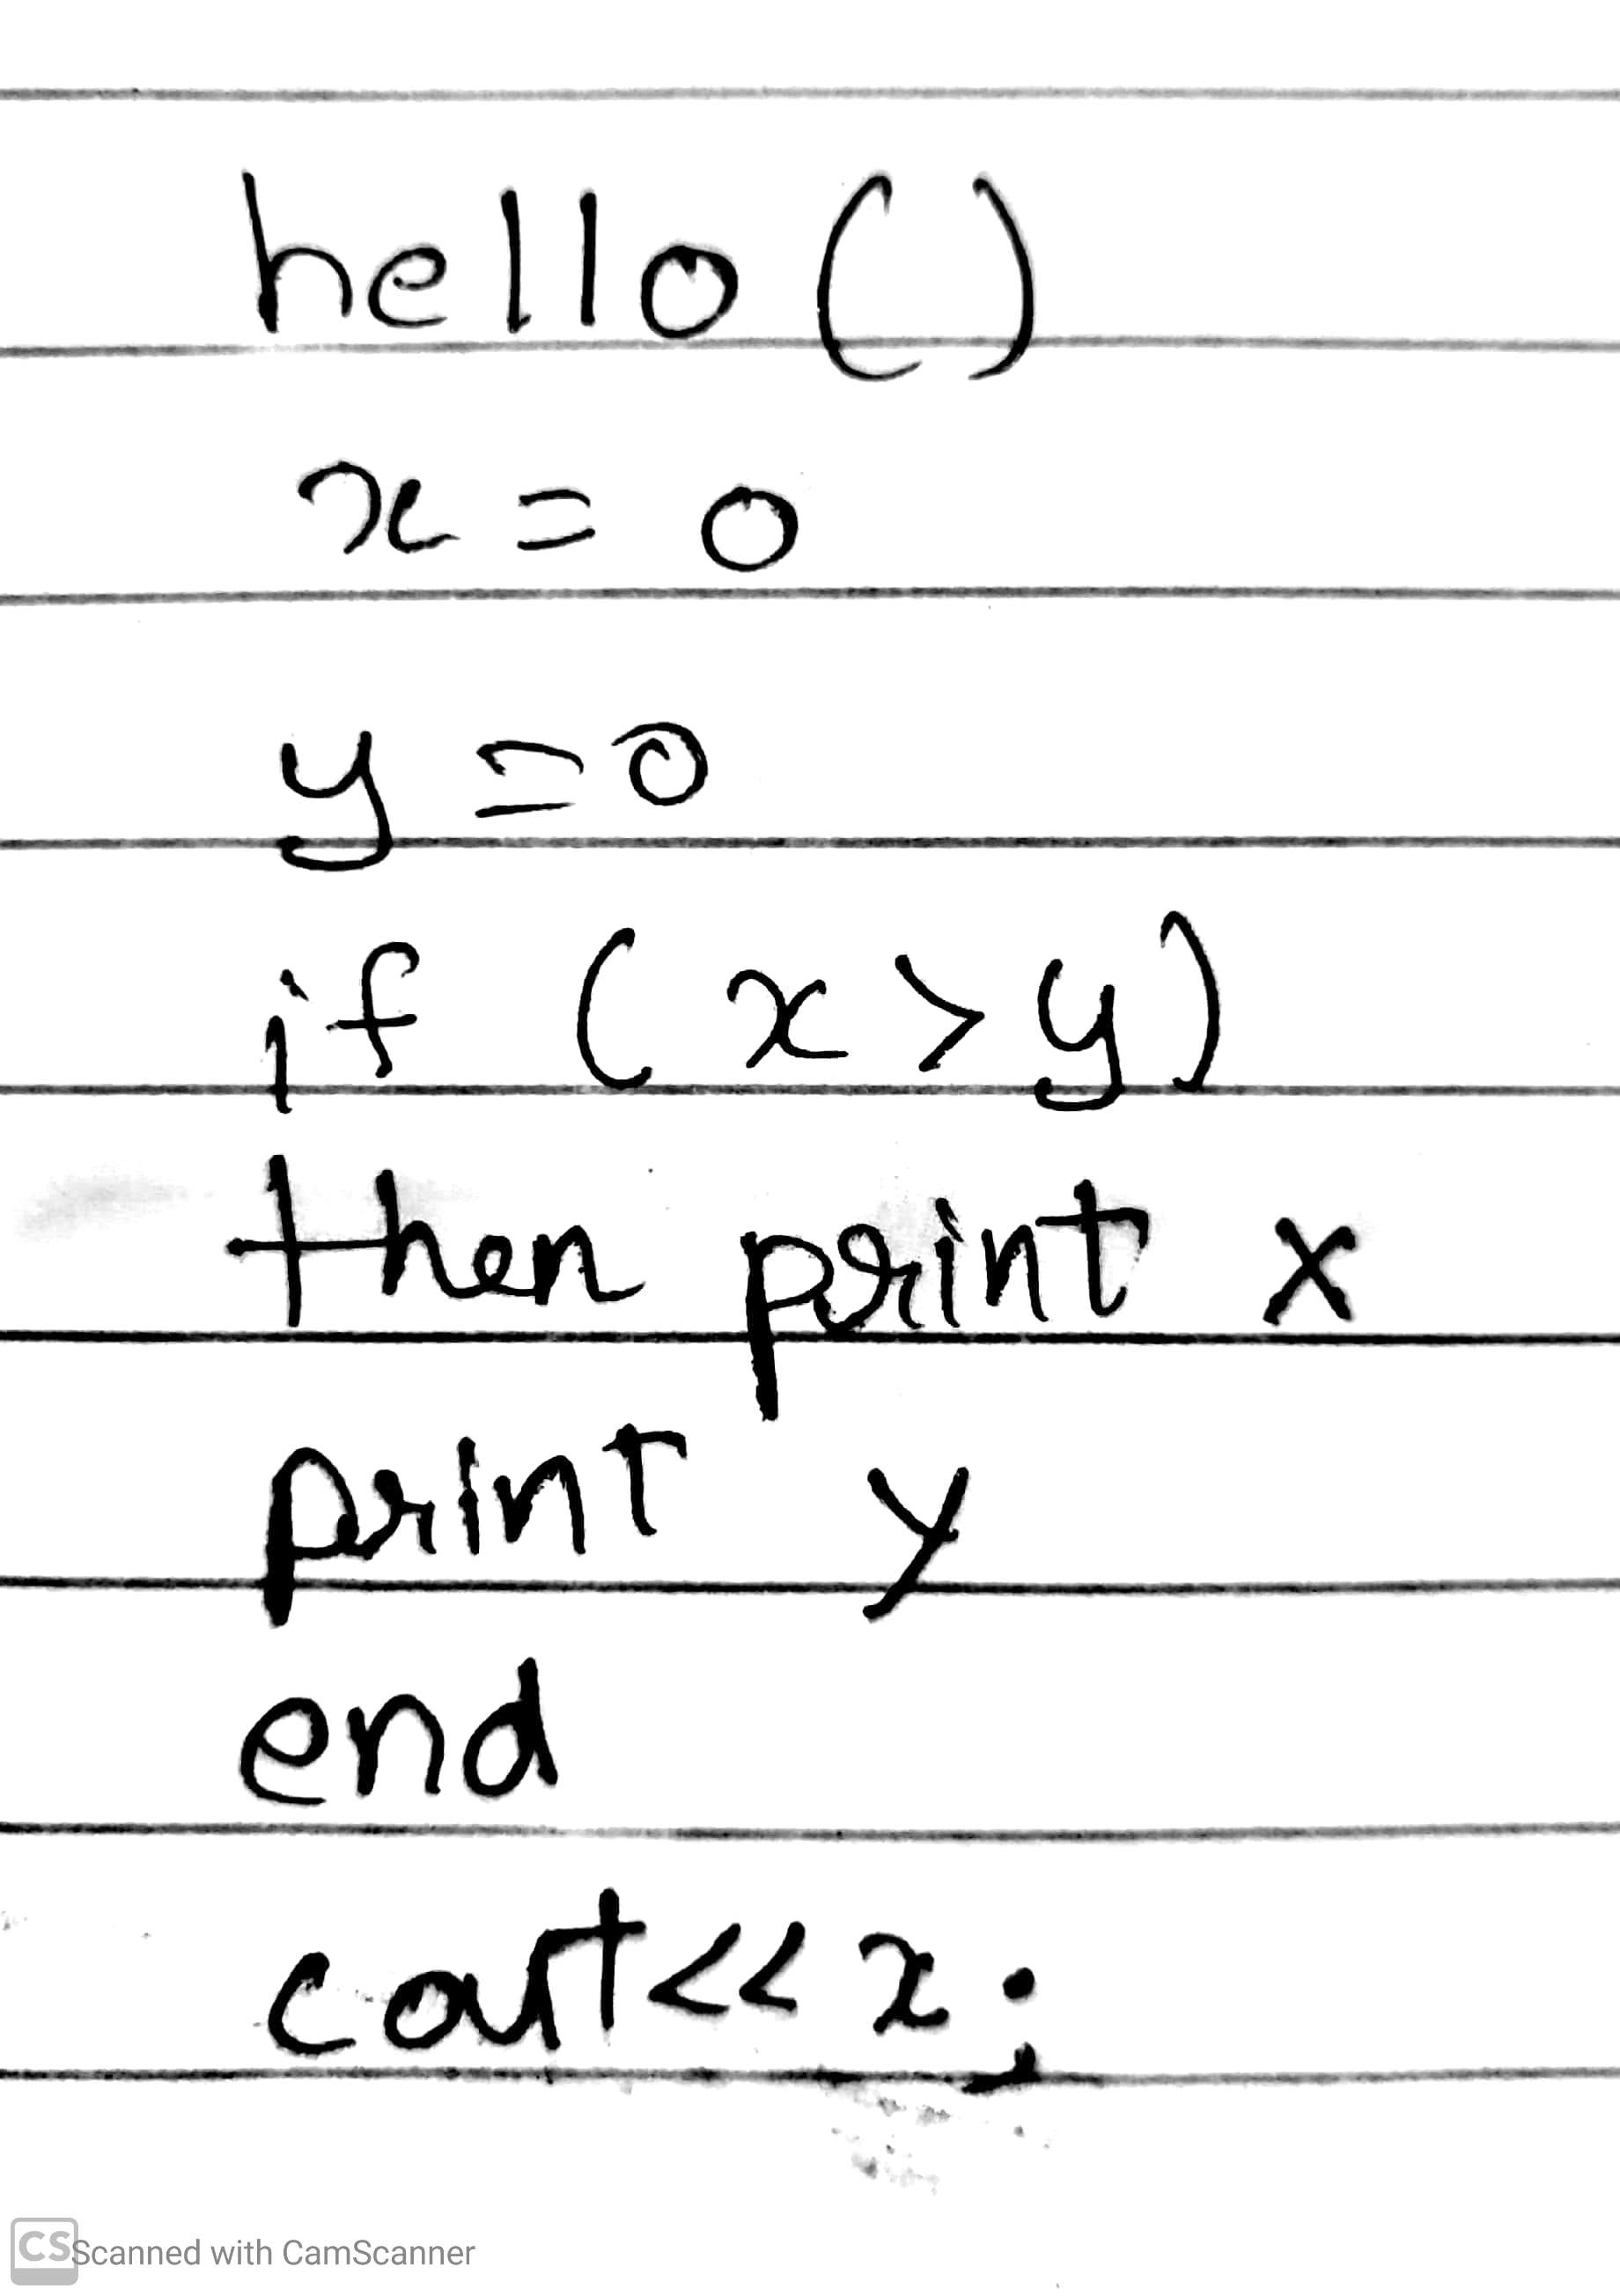 hello ()
x = 0
y = 0
if (x > y)
then print x
print y
end
cout << x;
CS Scanned with CamScanner